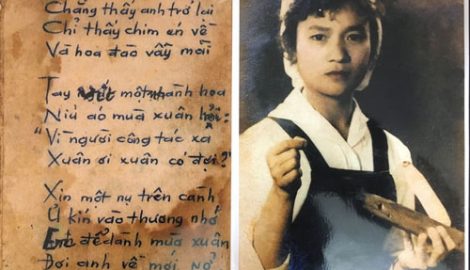 Chẳng thấy anh trở lại
Chỉ thấy chim én về
Và hoa đào vẫy mời
Tay một nhành hoa
Níu áo mùa xuân hỏi:
"Vì người công tác xa
Xuân ơi xuân có đợi?"
Xin một nụ trên cành
Ủ kín vào thương nhớ
Em để dành mùa xuân
Đợi anh về mới nở